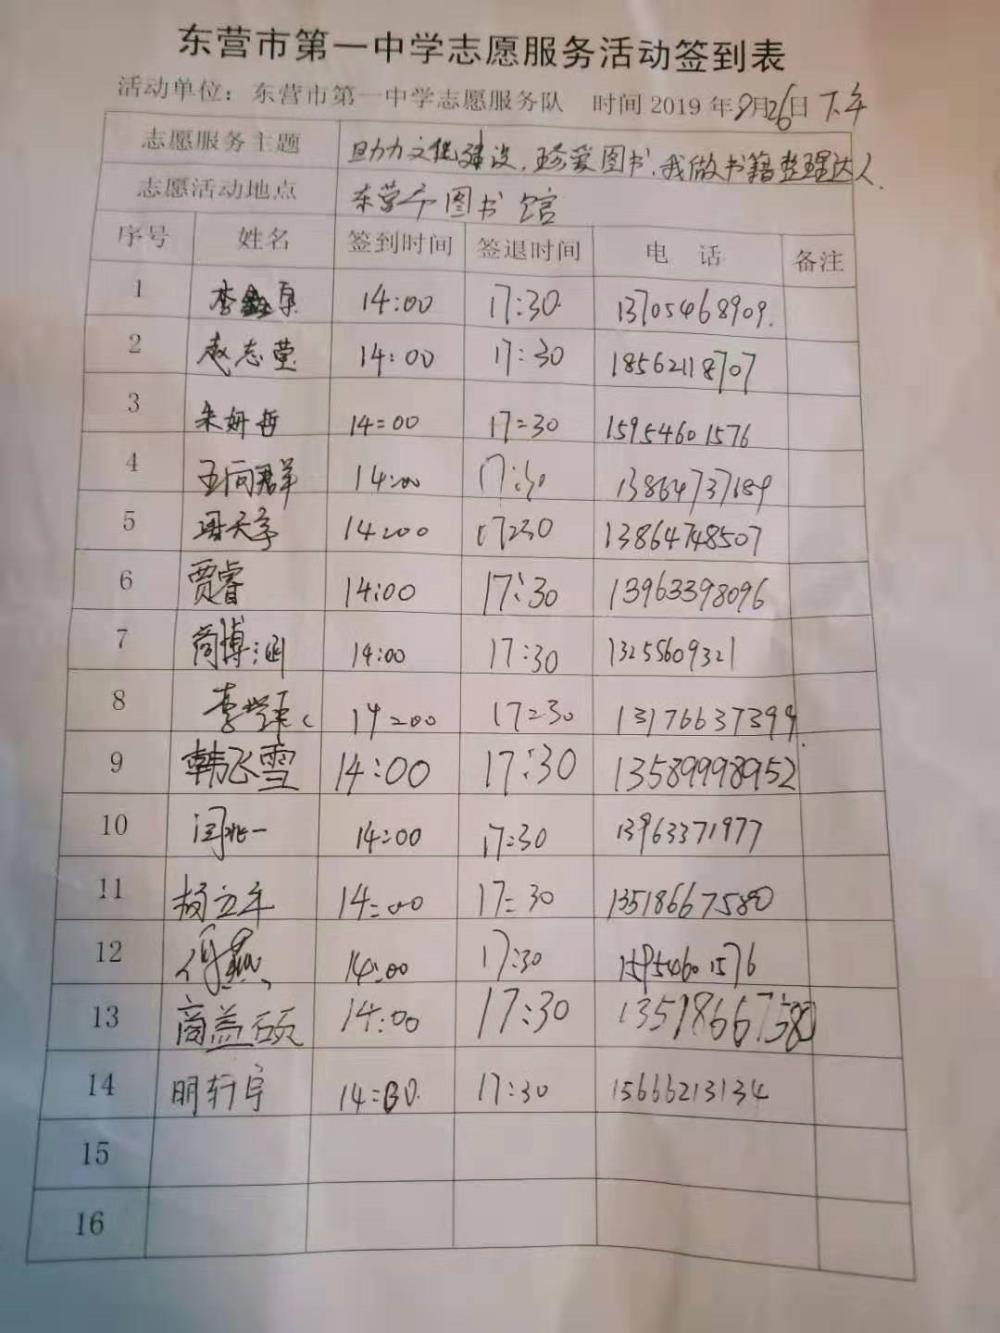 东营市第一中学志愿服务活动签到表
活动单位：东营市第一中学志愿服务队 时间 2019 年 月26日 下午
志愿服务主题 助力文化建设，珍爱图书，我做书籍整理达人.
志愿活动地点 东营市图书馆
序号 姓名 签到时间 签退时间 电 话 备注
1 14:00 17:30 13705468909.
2 赵志萱 14:00 17:30 18562118707
3 朱妍哲 14:00 17:30 15954601576
4 14:00 17:30
5 14:00 17:30 13864748507
6 贾睿 14:00 17:30 13963398096
7 14:00 17:30 13255609321
8 14:00 17:30
9 韩飞雪 14:00 17:30 13589998952
10 闫兆一 14:00 17:30 13963371977
11 杨立年 14:00 17:30 13518667580
12 14:00 17:30 15954601576
13 商益硕 14:00 17:30 13518667580
14 明轩宇 14:00 17:30 15666213134
15
16